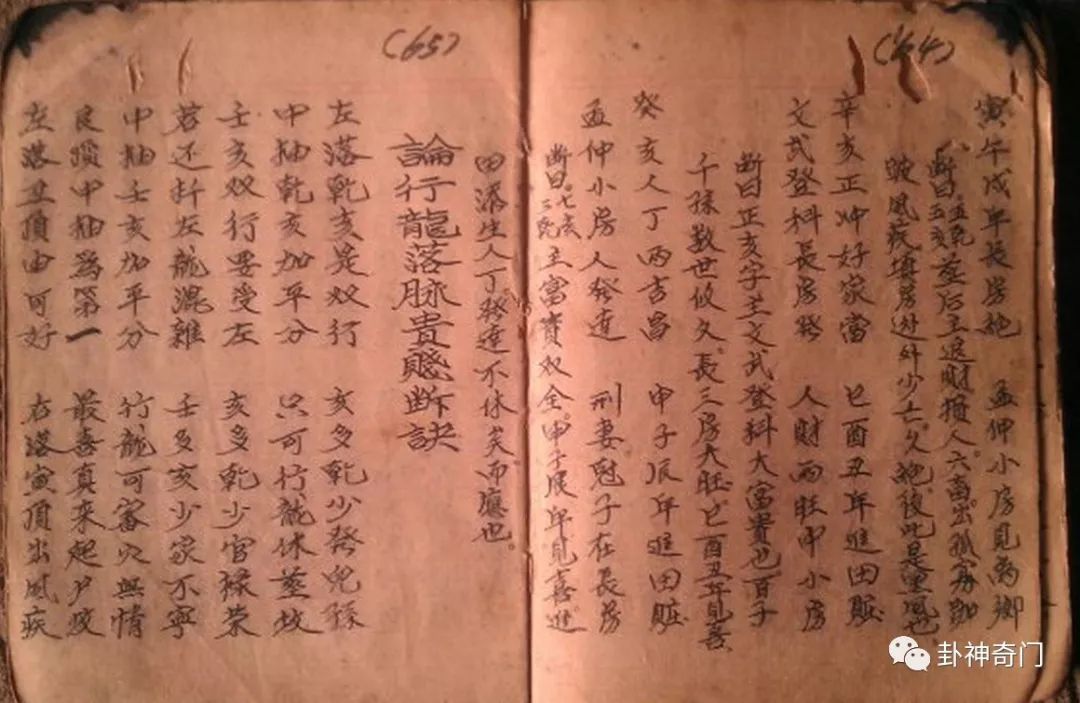 (64)
寅午戌年長房絕 孟仲小房見离鄉
断曰。五亥葬后主退財損人六畜。出孤寡跏
跛風疾填房过外少亡。久絕後此是黑風也
辛亥正冲好家當 巳酉丑年進田庄
文武登科長房發 人財两旺中小房
断曰正亥字主文武登科大富貴也百子
千孫数世攸久長。三房大旺巳酉丑年見喜
癸亥人丁两吉昌 申子辰年進田庄
孟仲小房人發達 刑妻尅子在長房
断曰。七亥主富貴双全。申子辰年見喜進
田添生人丁發達不休矣而應也。
(65)
論行龍落脉貴賤断訣
左落乾亥是双行 亥多乾少發兒孫
中抽乾亥加平分 只可行龍休葬坟
壬亥双行要受左 亥多乾少官祿荣
若还扦左龍混雜 壬多亥少家不寧
中抽壬亥加平分 行龍可審穴無情
艮龍中抽為第一 最喜真来起
左落丑頂由可好 右落寅頂出風疾
卦神奇门